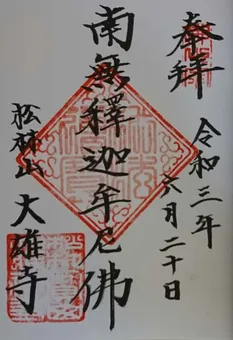 奉拝
令和三年
六月二十日
南無釋迦牟尼佛
松林山
大雄寺